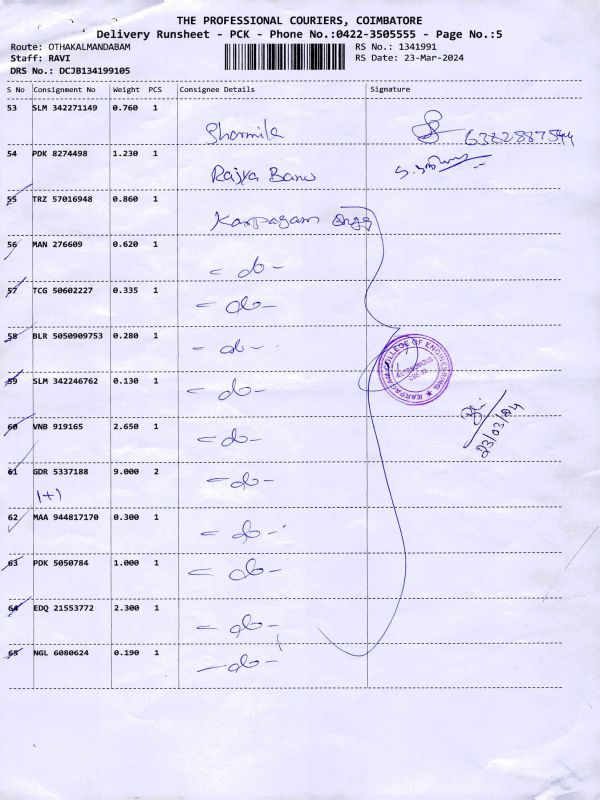 THE PROFESSIONAL COURIERS, COIMBATORE
Delivery Runsheet - PCK - Phone No.:0422-3505555 - Page No.:5
Route: OTHAKALMANDABAM
RS No.: 1341991
Staff: RAVI
RS Date: 23-Mar-2024
DRS No.: DCJB134199105
S No Consignment No Weight PCS Consignee Details Signature
53 SLM 342271149 0.760 1
Sharmila 6382887544
54 PDK 8274498 1.230 1
Rajya Banu
55 TRZ 57016948 0.860 1
Karpagam Engg
56 MAN 276609 0.620 1
- do -
57 TCG 50602227 0.335 1
- do -
58 BLR 5050909753 0.280 1
- do -
KARPAGAM COLLEGE OF ENGINEERING
AUTONOMOUS
59 SLM 342246762 0.130 1
- do -
23/03/24
60 VNB 919165 2.650 1
- do -
61 GDR 5337188 9.000 2
1+1
- do -
62 MAA 944817170 0.300 1
- do -
63 PDK 5050784 1.000 1
- do -
64 EDQ 21553772 2.300 1
- do -
65 NGL 6080624 0.190 1
- do -